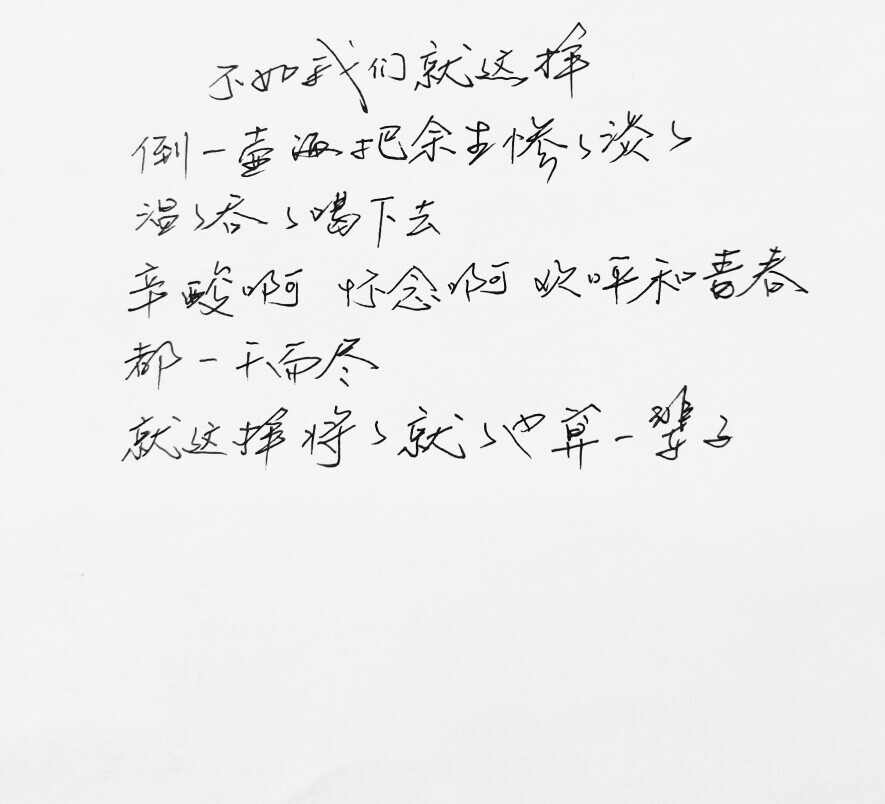 不如我们就这样
倒一壶酒把余生惨々淡々
温々吞々喝下去
辛酸啊 怀念啊 欢呼和青春
都一干而尽
就这样将々就々也算一辈子